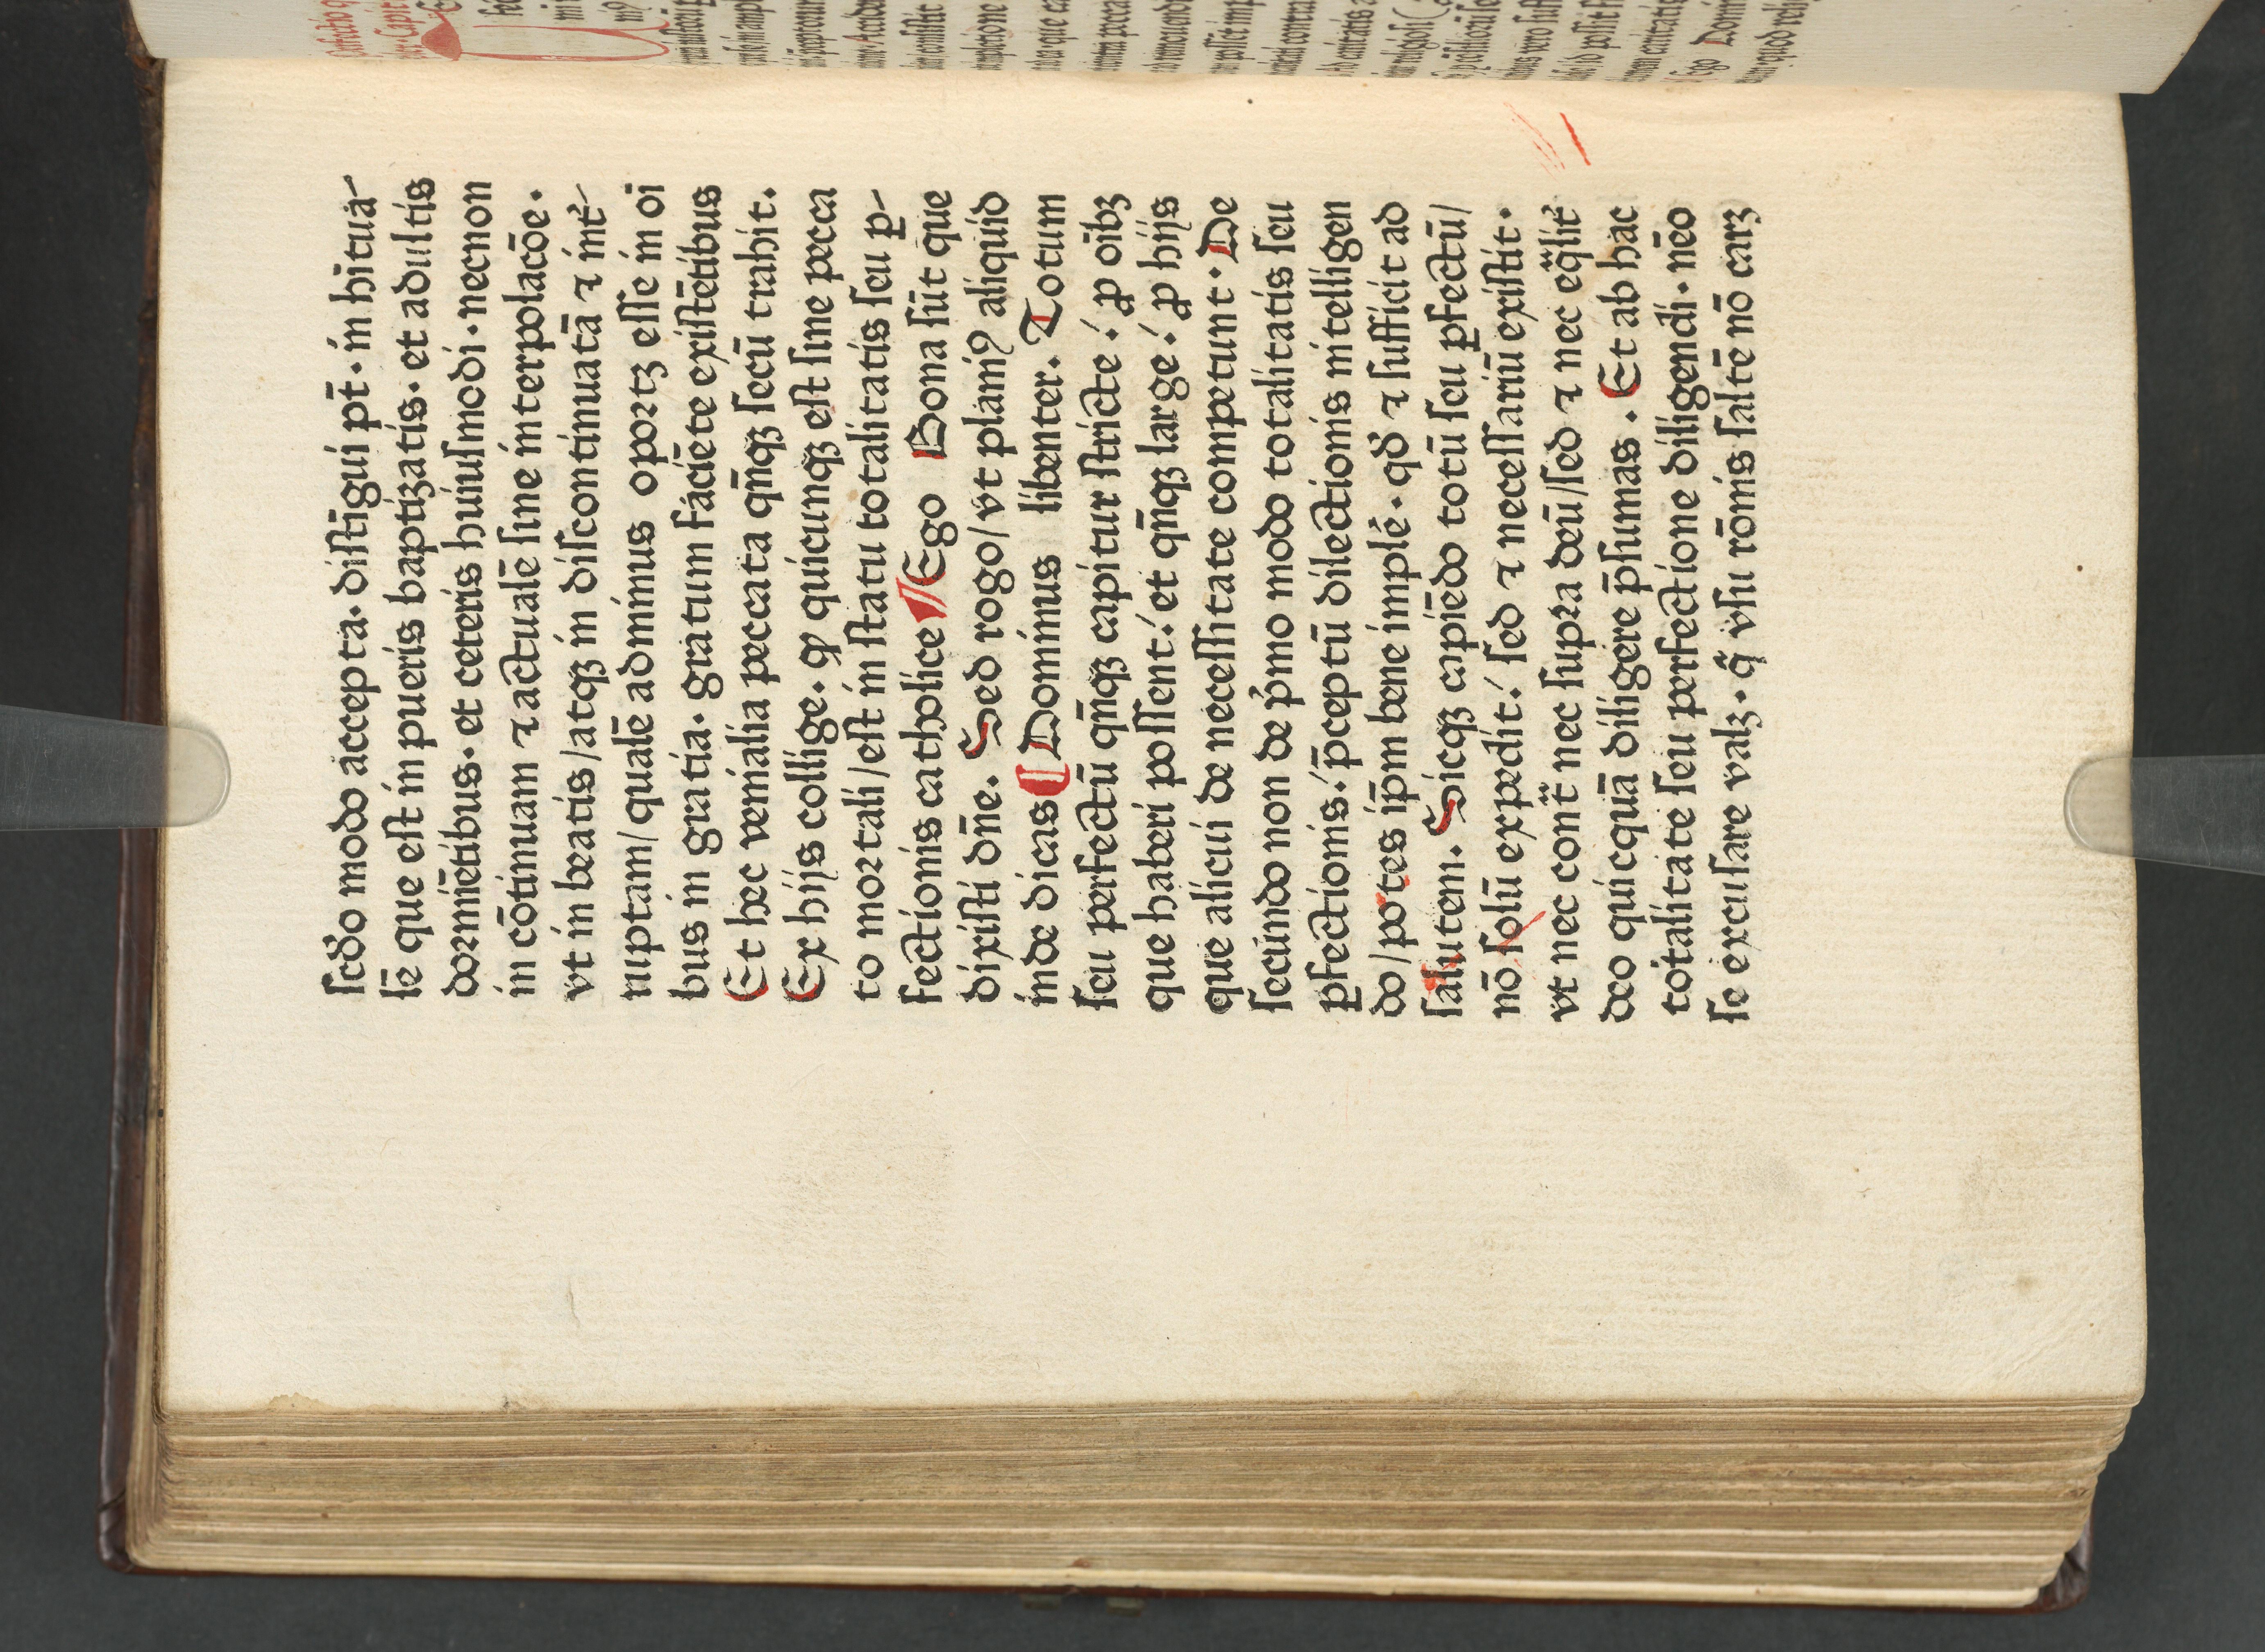 ſcďo modo accepta· diſtīgui pt̄· in hītua-
lē que eſt in pueris baptiʒatis· et adultis
doꝛmiētibus· et ceteris huiuſmodi· necnon
in cōtinuam ⁊ actualē ſine interpolacōe·
vt in beatis/atqʒ in diſcontinuatā ⁊ int̄-
ruptam/qualē adminus opoꝛtʒ eſſe in oī
bus in gratia· gratum faciēte exiſtētibus
Et hec venialia peccata qn̄qʒ ſecū trahit·
Ex hijs collige· ꝙ quicunqʒ eſt ſine pecca
to moꝛtali/eſt in ſtatu totalitatis ſeu ꝑ-
fectionis catholice Ego Bona ſūt que
dixiſti dn̄e· Sed rogo/vt planiꝰ aliquid
inde dicas Dominus libenter· Totum
ſeu perfectū qn̄qʒ capitur ſtricte: ꝓ oībʒ
que haberi poſſent: et qn̄qʒ large: ꝓ hijs
que alicui de neceſſitate competunt· De
ſecundo non de pͥmo modo totalitatis ſeu
ꝑfectionis: p̄ceptū dilectionis intelligen
do/potes ip̄m bene implē· qď ⁊ ſufficit ad
ſalutem· Sicqʒ capiēdo totū ſeu ꝑfectū/
nō ſolū expedit: ſed ⁊ neceſſariū exiſtit·
vt nec cont̄ nec ſupꝛa deū/ſed ⁊ nec eq̄lit̄
deo quicquā diligere p̄ſumas· Et ab hac
totalitate ſeu perfectione diligendi· nēo
ſe excuſare valʒ· q̄ vſu rōnis ſaltē nō carʒ